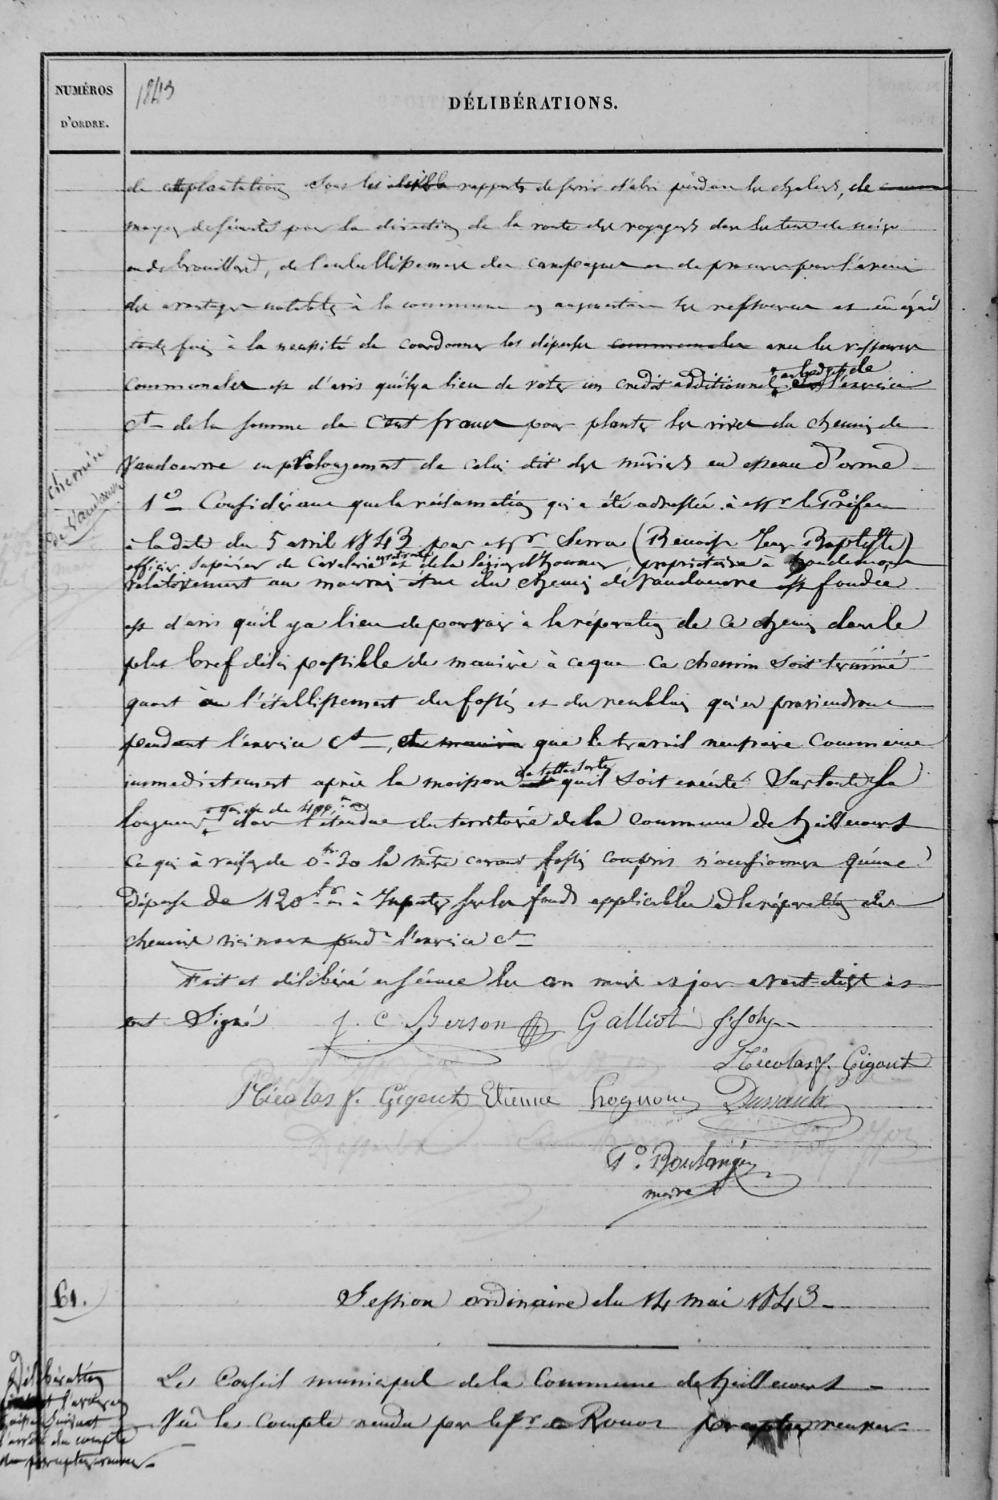 NUMÉROS
D'ORDRE.
1843
DÉLIBÉRATIONS.
de plantation sous les rapports de servir d'abri pendant les chaleurs, de
moyen de sécurité pour la direction de la route des voyageurs dans les tems de neige
ou de brouillard, de l'embellissement des campagnes et de procurer pour l'avenir
des avantages notables à la commune en augmentant ses ressources et eu égard
toute fois à la nécessité de coordonner les dépenses communales avec les ressources
communales est d'avis qu'il y a lieu de voter un crédit additionnel au budget de l'exercice
Ct de la somme de Cent francs pour planter les rives du chemin de
Vandoeuvre en prolongement de celui dit des mûriers en essence d'orme
chemin
de Vandoeuvre
1º Considérant que la réclamation qui a été adressée à Mr le Préfet
à la date du 5 avril 1843 par Mr Serra (Benoist Jean Baptiste)
officier supérieur de Cavalerie en retraite et de la légion d'honneur, propriétaire à
relativement au mauvais état du chemin de Vandoeuvre est fondée
est d'avis qu'il y a lieu de pourvoir à la réparation de ce chemin dans le
plus bref délai possible de manière à ce que ce chemin soit terminé
quant à l'établissement des fossés et des remblais qui en proviendront
pendant l'exercice Ct, que le travail nécessaire commence
immédiatement après la moisson de telle sorte qu'il soit exécuté sur toute sa
longueur dans l'étendue du territoire de la commune de heillecourt
ce qui à raison de 0 fr 20 le mètre courant fossés compris n'occasionnera qu'une
dépense de 120 fr à imputer sur les fonds applicables à la réparation des
chemins vicinaux pendt l'exercice Ct
Fait et délibéré en séance les an mois et jour avant dits et
ont Signé J. C Berson Galliot J. Joly
Nicolas f. Gigout
Nicolas f. Gigout Etienne hognon
P. Boulangé
maire
61.
Session ordinaire du 14 mai 1843
Délibération
suivant
l'arrêté du compte
du percepteur
Le Conseil municipal de la Commune de heillecourt
Vu le Compte rendu par le Sr Rouot percepteur receveur